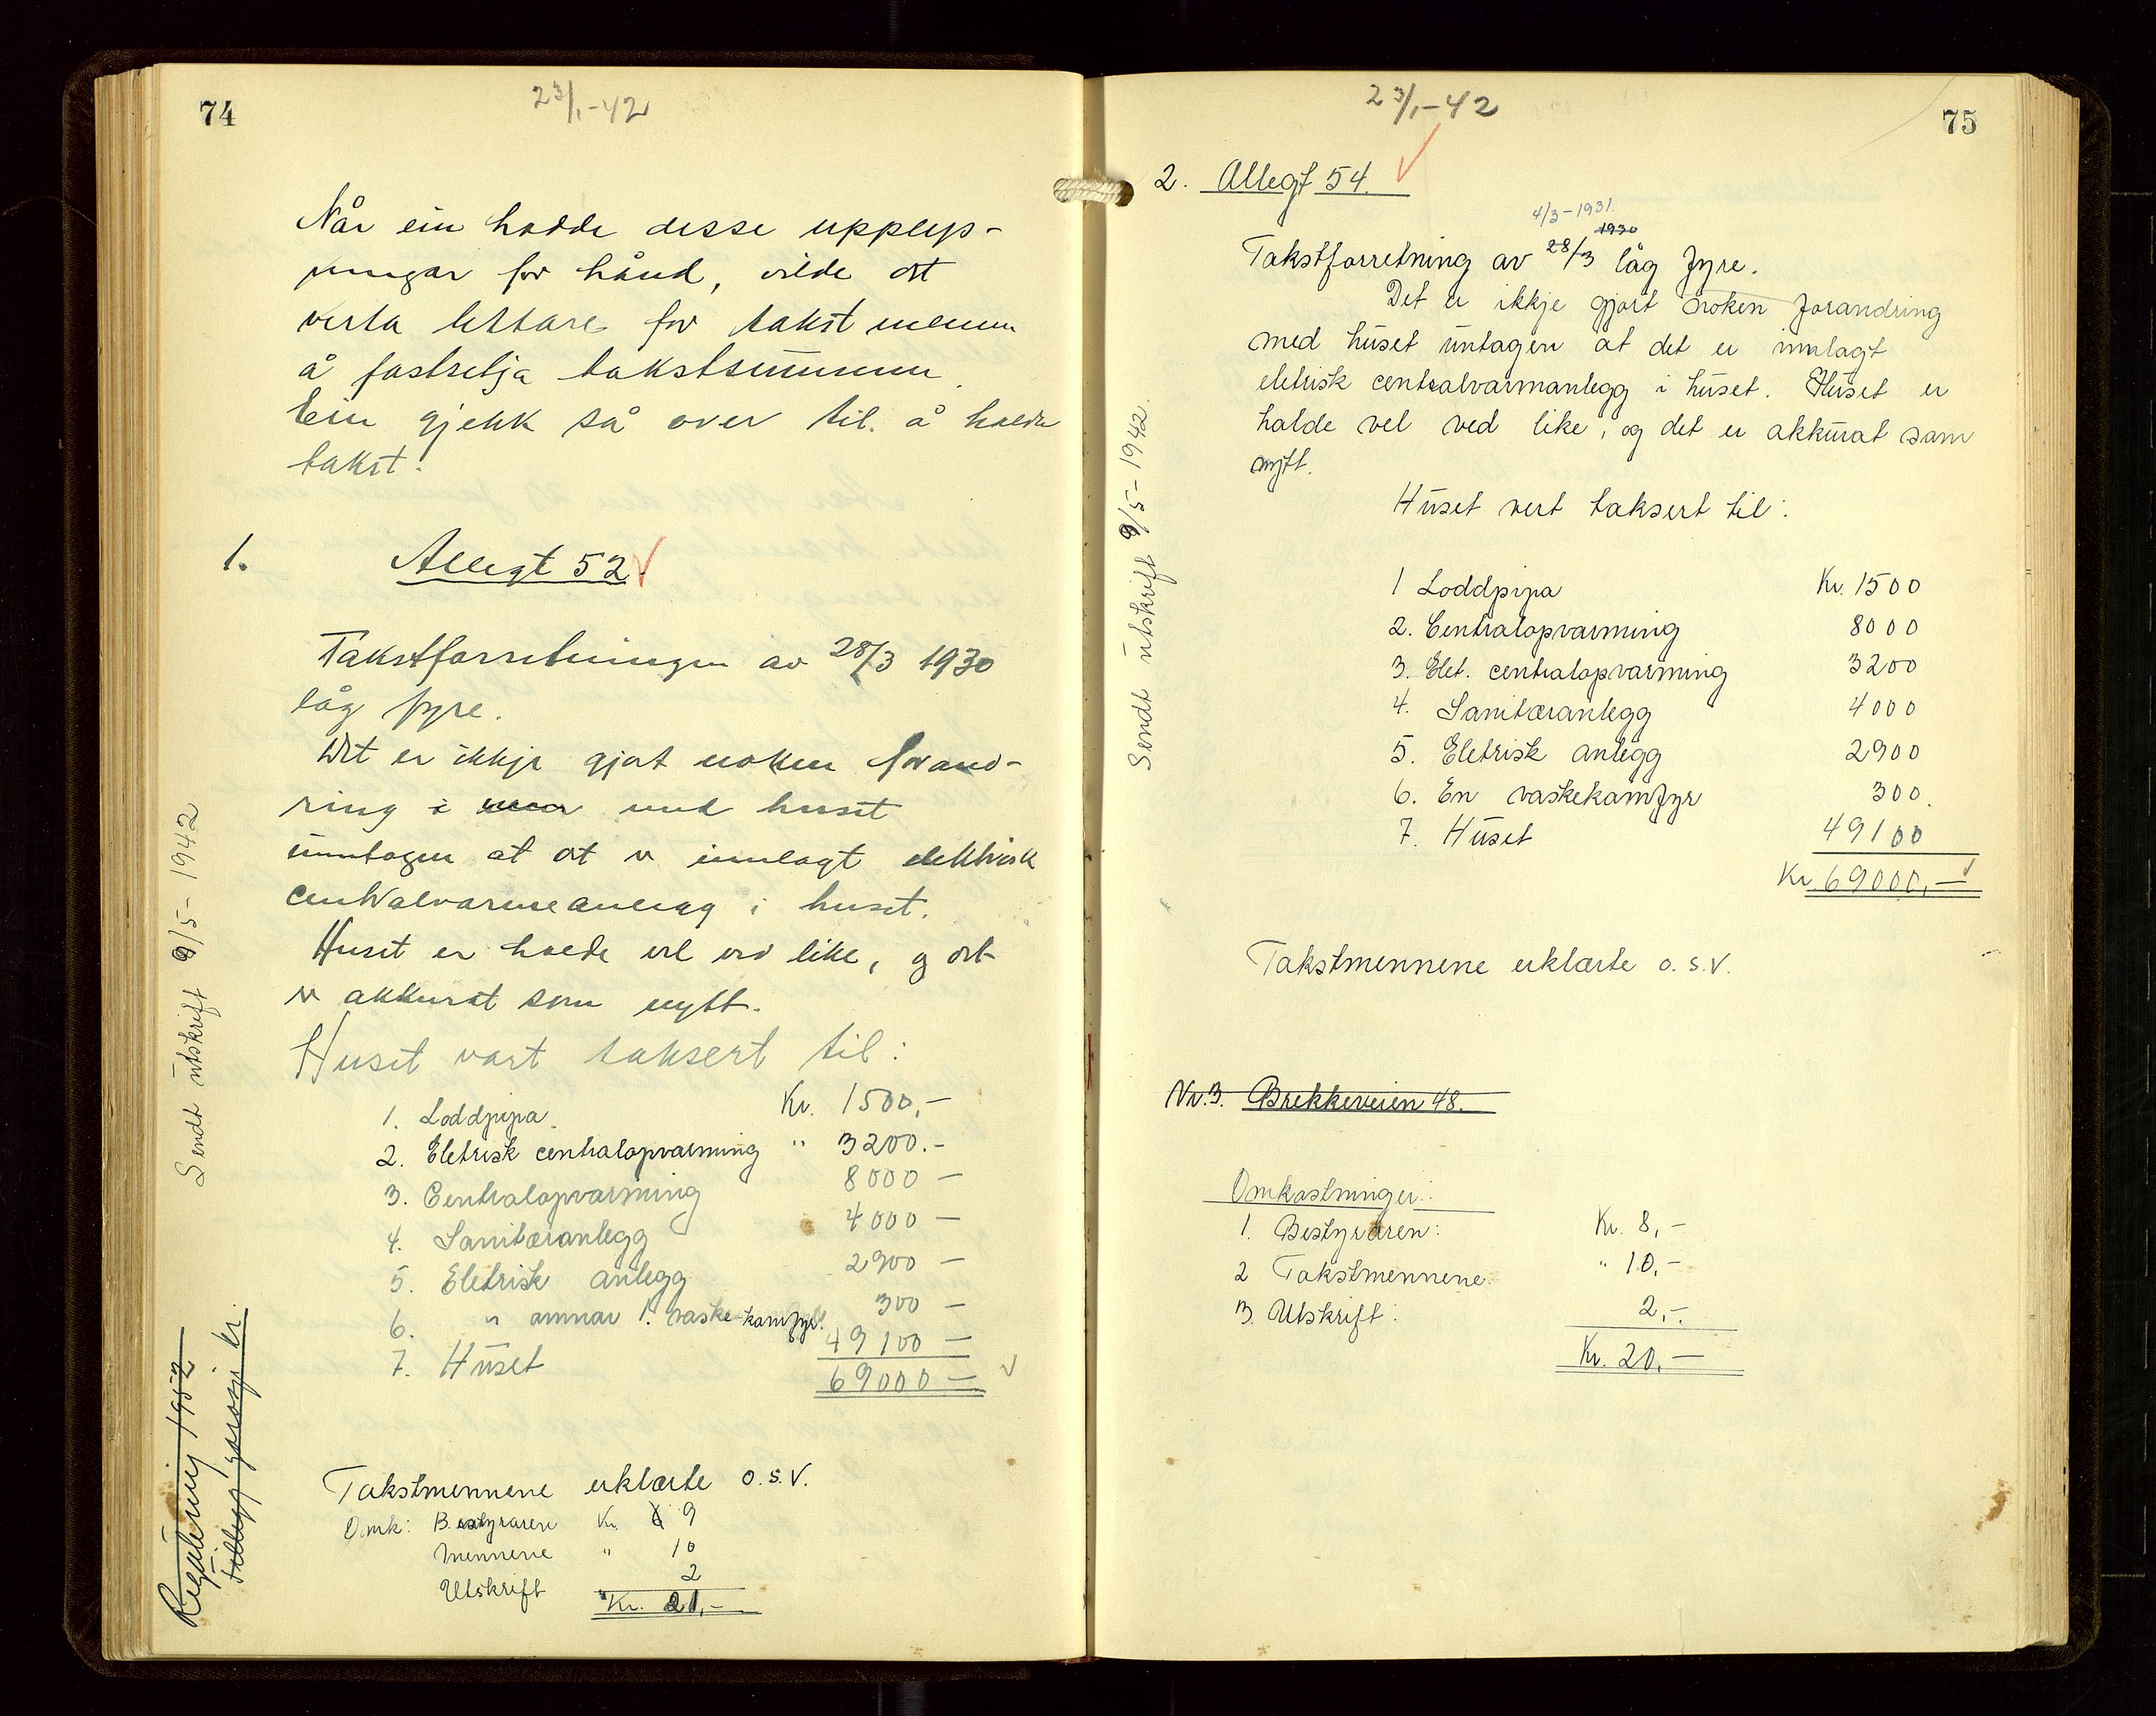 74
23/1-42
Når ein hadde desse upplys-
ningar for hånd, vilde det
verta lettare for takstmenn
å fastsetja takstsummen.
Ein gjekk så over til å halda
takst.
1. Allegt 52
Takstforretningen av 28/3 1930
låg fyre.
Det er ikkje gjort noken forand-
ring i med huset
unntagen at det er innlagt elektrisk
centralvarmeanlegg i huset.
Huset er halde vel ved like, og det
er akkurat som nytt.
Huset vart taksert til:
1. Loddpipa Kr. 1500,-
2. Eletrisk centralopvarming " 3200.-
3. Centralopvarming 8000 -
4. Sanitæranlegg 4000 -
5. Eletrisk anlegg 2900 -
6. " 1. vaske-kamfyr. 300 -
7. Huset 49100 -
69000 -
Takstmennene erklærte o.s.v.
Omk: Bestyraren Kr. 9
Mennene " 10
Utskrift 2
Kr. 21,-
Sendt utskrift 9/5-1942
Regulering 1952
Tillegg garasje kr.
75
23/1-42
2. Allegt 54.
4/3-1931.
1930
Takstforretning av 28/3 låg fyre.
Det er ikkje gjort noken forandring
med huset untagen at det er innlagt
eletrisk centralvarmanlegg i huset. Huset er
halde vel ved like, og det er akkurat som
nytt.
Huset vert taksert til:
1 Loddpipa Kr. 1500
2. Centralopvarming 8000
3. Elet. centralopvarming 3200
4. Sanitæranlegg 4000
5. Eletrisk anlegg 2900
6. En vaskekamfyr 300.
7. Huset 49100
Kr. 69000,-
Takstmennene erklærte o.s.v.
Nr. 3. Brekkeveien 48.
Omkostninger:
1. Bestyraren: Kr. 8,-
2 Takstmennene: " 10,-
3. Utskrift: 2,-
Kr. 20,-
Sendt utskrift 9/5-1942.